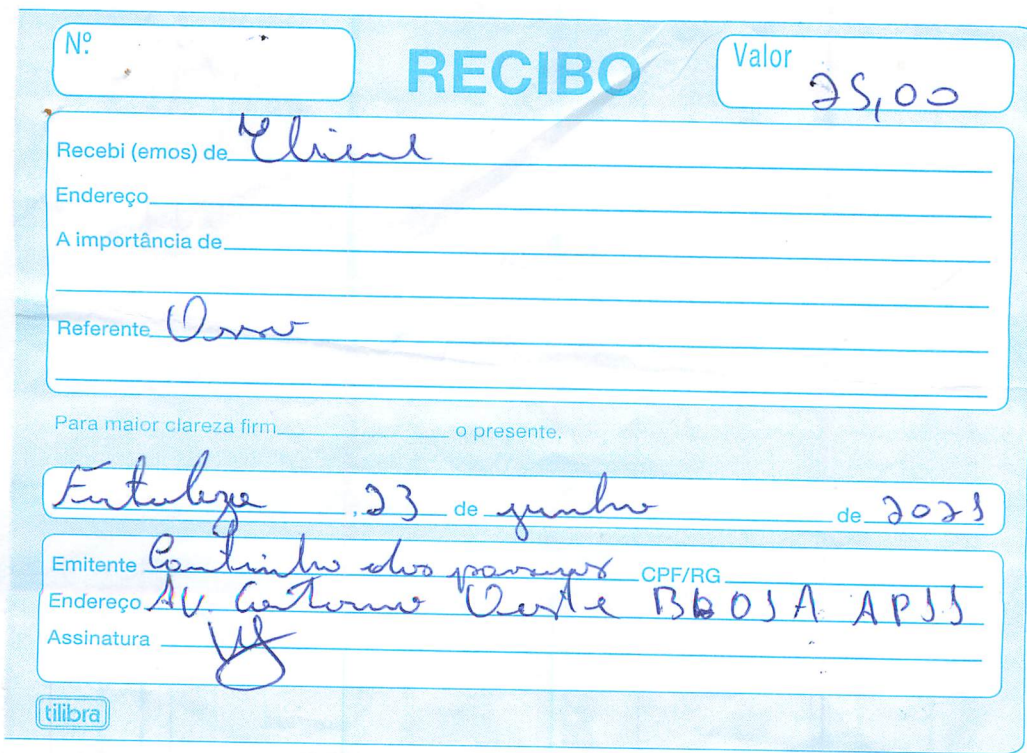 Nº
RECIBO
Valor
25,00
Recebi (emos) de Cliente
Endereço
A importância de
Referente Osso
Para maior clareza firm o presente.
Fortaleza , 23 de junho de 2021
Emitente Cantinho dos CPF/RG
Endereço AV. Contorno Oeste BL01A AP11
Assinatura
tilibra